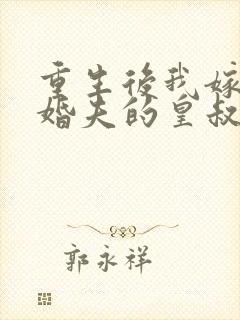 重生後我嫁
婚夫的皇叔
郭永祥